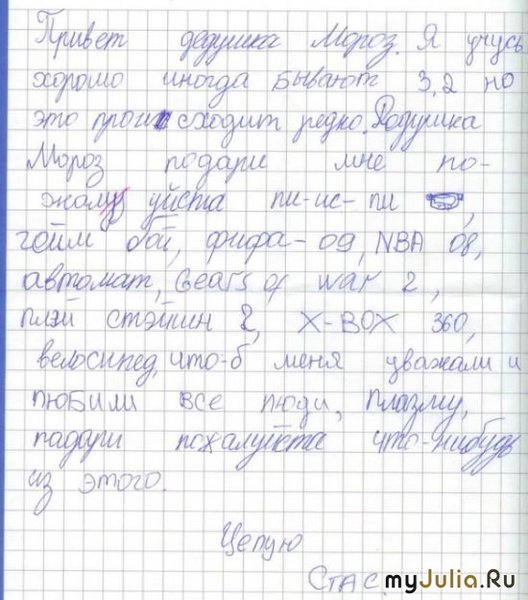 Привет дедушка Мороз. Я учусь
хорошо иногда бывают 3,2 но
это происходит редко. Дедушка
Мороз подари мне по-
жалуйста пи-ис-пи,
гейм бой, фифа-09, NBA 08,
автомат, Gears of war 2,
плэй стэйшн 2, X-BOX 360,
велосипед, что-б меня уважали и
любили все люди, плазму,
падари пожалуйста что-нибудь
из этого.
Целую
Стас.
myJulia.Ru